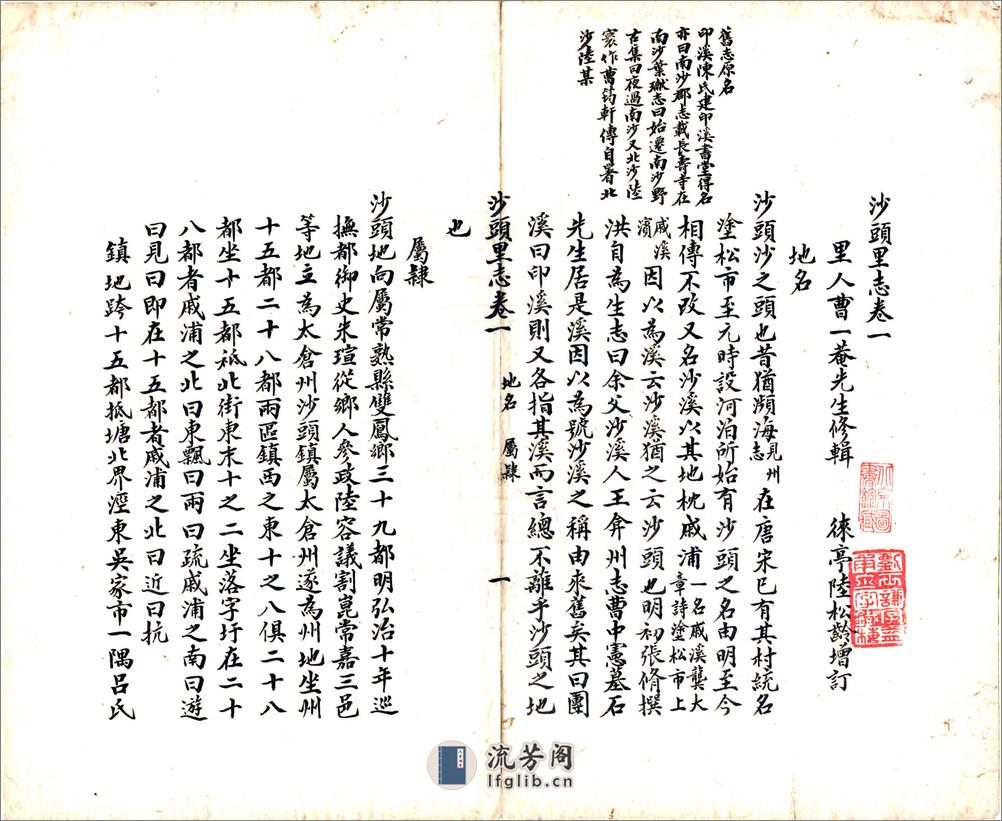 舊志原名
印溪陳氏建印溪書堂得名
亦曰南沙郡志載長壽寺在
南沙葉
志曰始遷南沙野
古集曰夜過南沙又北沙陸
寰作曹筠軒傳自署北
沙陸某
沙頭里志卷一
里人曹一菴先生修輯 徠亭陸松齡增訂
地名
沙頭沙之頭也昔猶瀕海見州志在唐宋已有其村統名
塗松市至元時設河泊所始有沙頭之名由明至今
相傳不改又名沙溪以其地枕戚浦一名戚溪龔大章詩塗松市上
戚溪濱因以為溪云沙溪猶之云沙頭也明初張脩撰
洪自為生志曰余父沙溪人王弇州志曹中憲墓石
先生居是溪因以為號沙溪之稱由來舊矣其曰團
溪曰印溪則又各指其溪而言總不離乎沙頭之地
沙頭里志卷一 地名 屬隸 一
也
屬隸
沙頭地向屬常熟縣雙鳳鄉三十九都明弘治十年巡
撫都御史朱瑄從鄉人參政陸容議割崑常嘉三邑
等地立為太倉州沙頭鎮屬太倉州遂為州地坐州
十五都二十八都兩區鎮西之東十之八俱二十八
都坐十五都祗北街東末十之二坐落字圩在二十
八都者戚浦之北曰東飄曰雨曰疏戚浦之南曰遊
曰見曰即在十五都者戚浦之北曰近曰抗
鎮地跨十五都抵塘北界溼東吳家市一隅呂氏
流芳阁
lfglib.cn